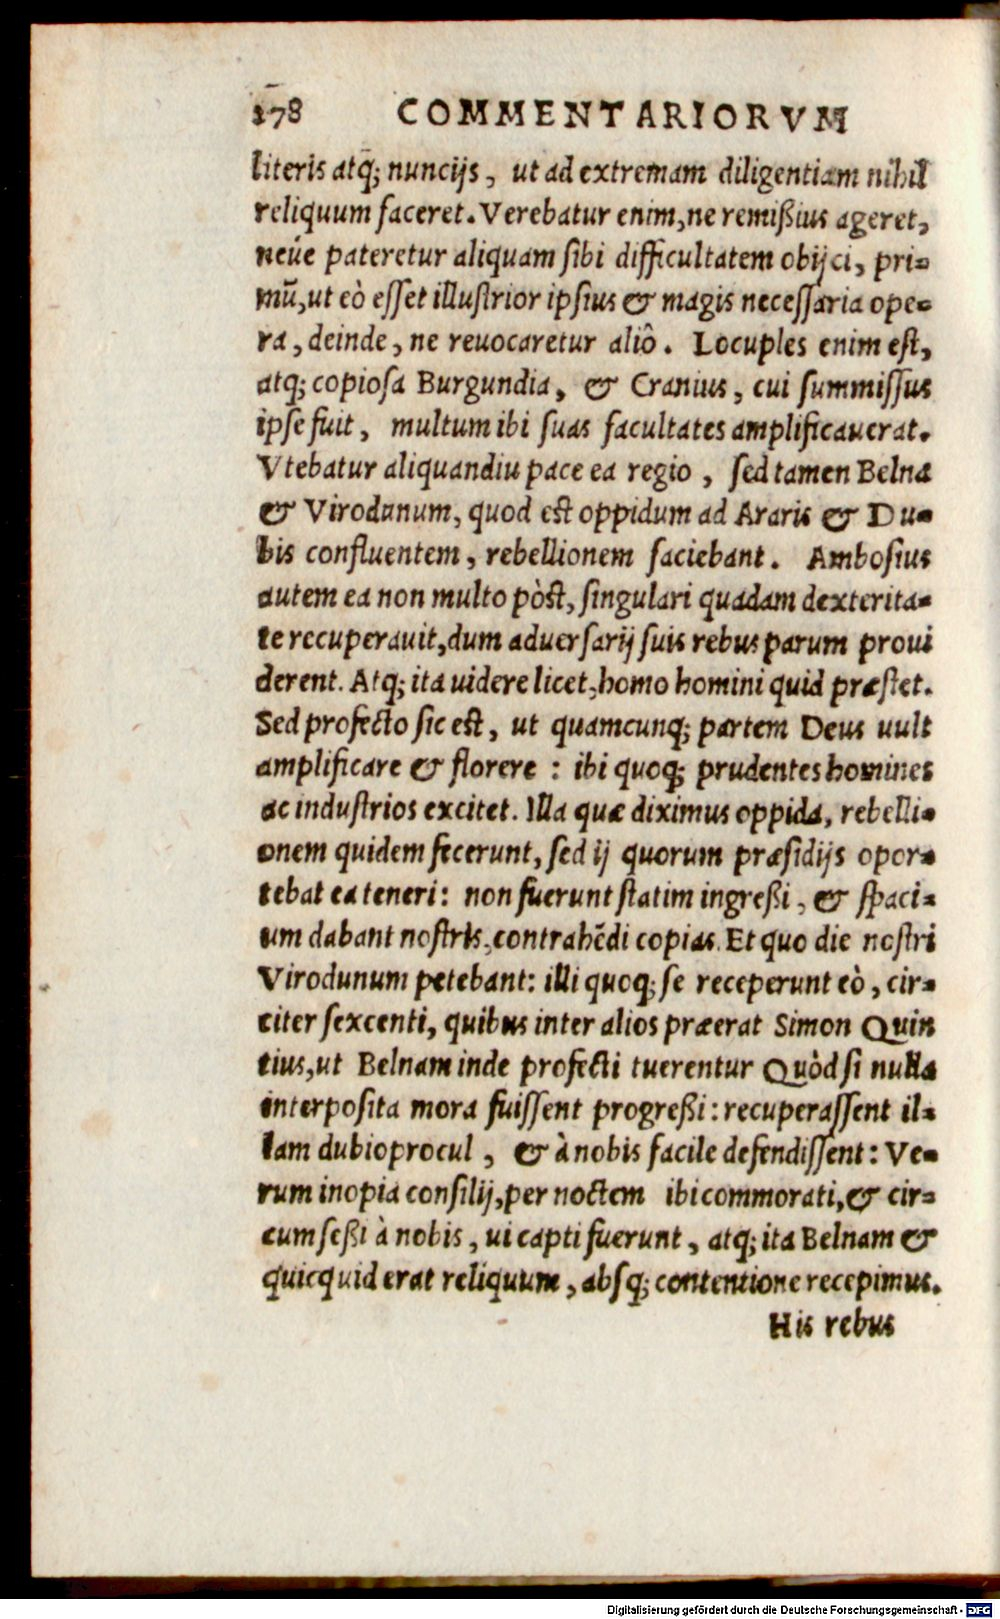 178 COMMENTARIORVM
literis atq; nuncijs, ut ad extremam diligentiam nihil
reliquum faceret. Verebatur enim, ne remißius ageret,
neúe pateretur aliquam sibi difficultatem obijci, pri=
mũ, ut eò esset illustrior ipsius & magis necessaria ope=
ra, deinde, ne reuocaretur aliò. Locuples enim est,
atq; copiosa Burgundia, & Cranius, cui summissus
ipse fuit, multum ibi suas facultates amplificauerat.
Vtebatur aliquandiu pace ea regio, sed tamen Belna
& Virodunum, quod est oppidum ad Araris & Du=
bis confluentem, rebellionem faciebant. Ambosius
autem ea non multo pòst, singulari quadam dexterita=
te recuperauit, dum aduersarij suis rebus parum proui
derent. Atq; ita uidere licet, homo homini quid præstet.
Sed profecto sic est, ut quamcunq; partem Deus uult
amplificare & florere : ibi quoq; prudentes homines
ac industrios excitet. Illa quæ diximus oppida, rebelli=
onem quidem fecerunt, sed ij quorum præsidijs opor=
tebat ea teneri: non fuerunt statim ingreßi, & spaci=
um dabant nostris, contrahẽdi copias. Et quo die nostri
Virodunum petebant: illi quoq; se receperunt eò, cir=
citer sexcenti, quibus inter alios præerat Simon Quin
tius, ut Belnam inde profecti tuerentur Quòd si nulla
interposita mora fuissent progreßi: recuperassent il=
lam dubioprocul, & à nobis facile defendissent: Ve=
rum inopia consilij, per noctem ibi commorati, & cir=
cumseßi à nobis, ui capti fuerunt, atq; ita Belnam &
quicquid erat reliquum, absq; contentione recepimus.
His rebus
Digitalisierung gefördert durch die Deutsche Forschungsgemeinschaft - DFG